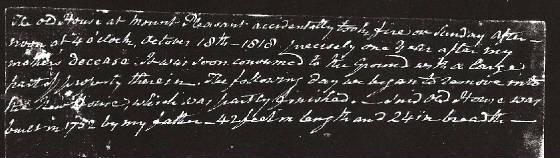 The old House at Mount Pleasant accidentally took fire on Sunday after-
noon at 4 o'clock, October 18th - 1818 precisely one year after my
mothers decease. It was soon consumed to the Ground with a large
part of property therein. The following day we began to remove into
the New House, which was partly finished. - Said Old House was
built in 1752 by my father - 42 feet in length and 24 in breadth. -